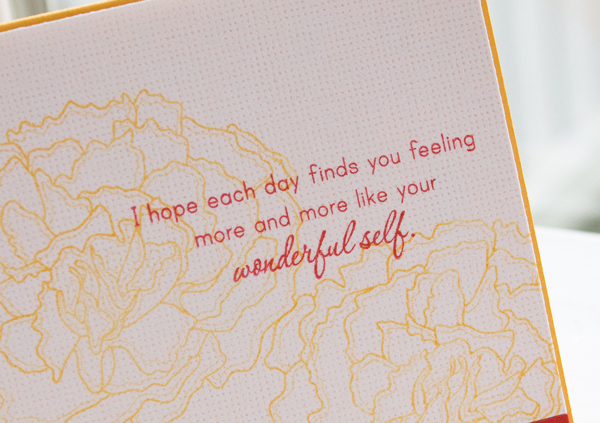 I hope each day finds you feeling
more and more like your
wonderful self.